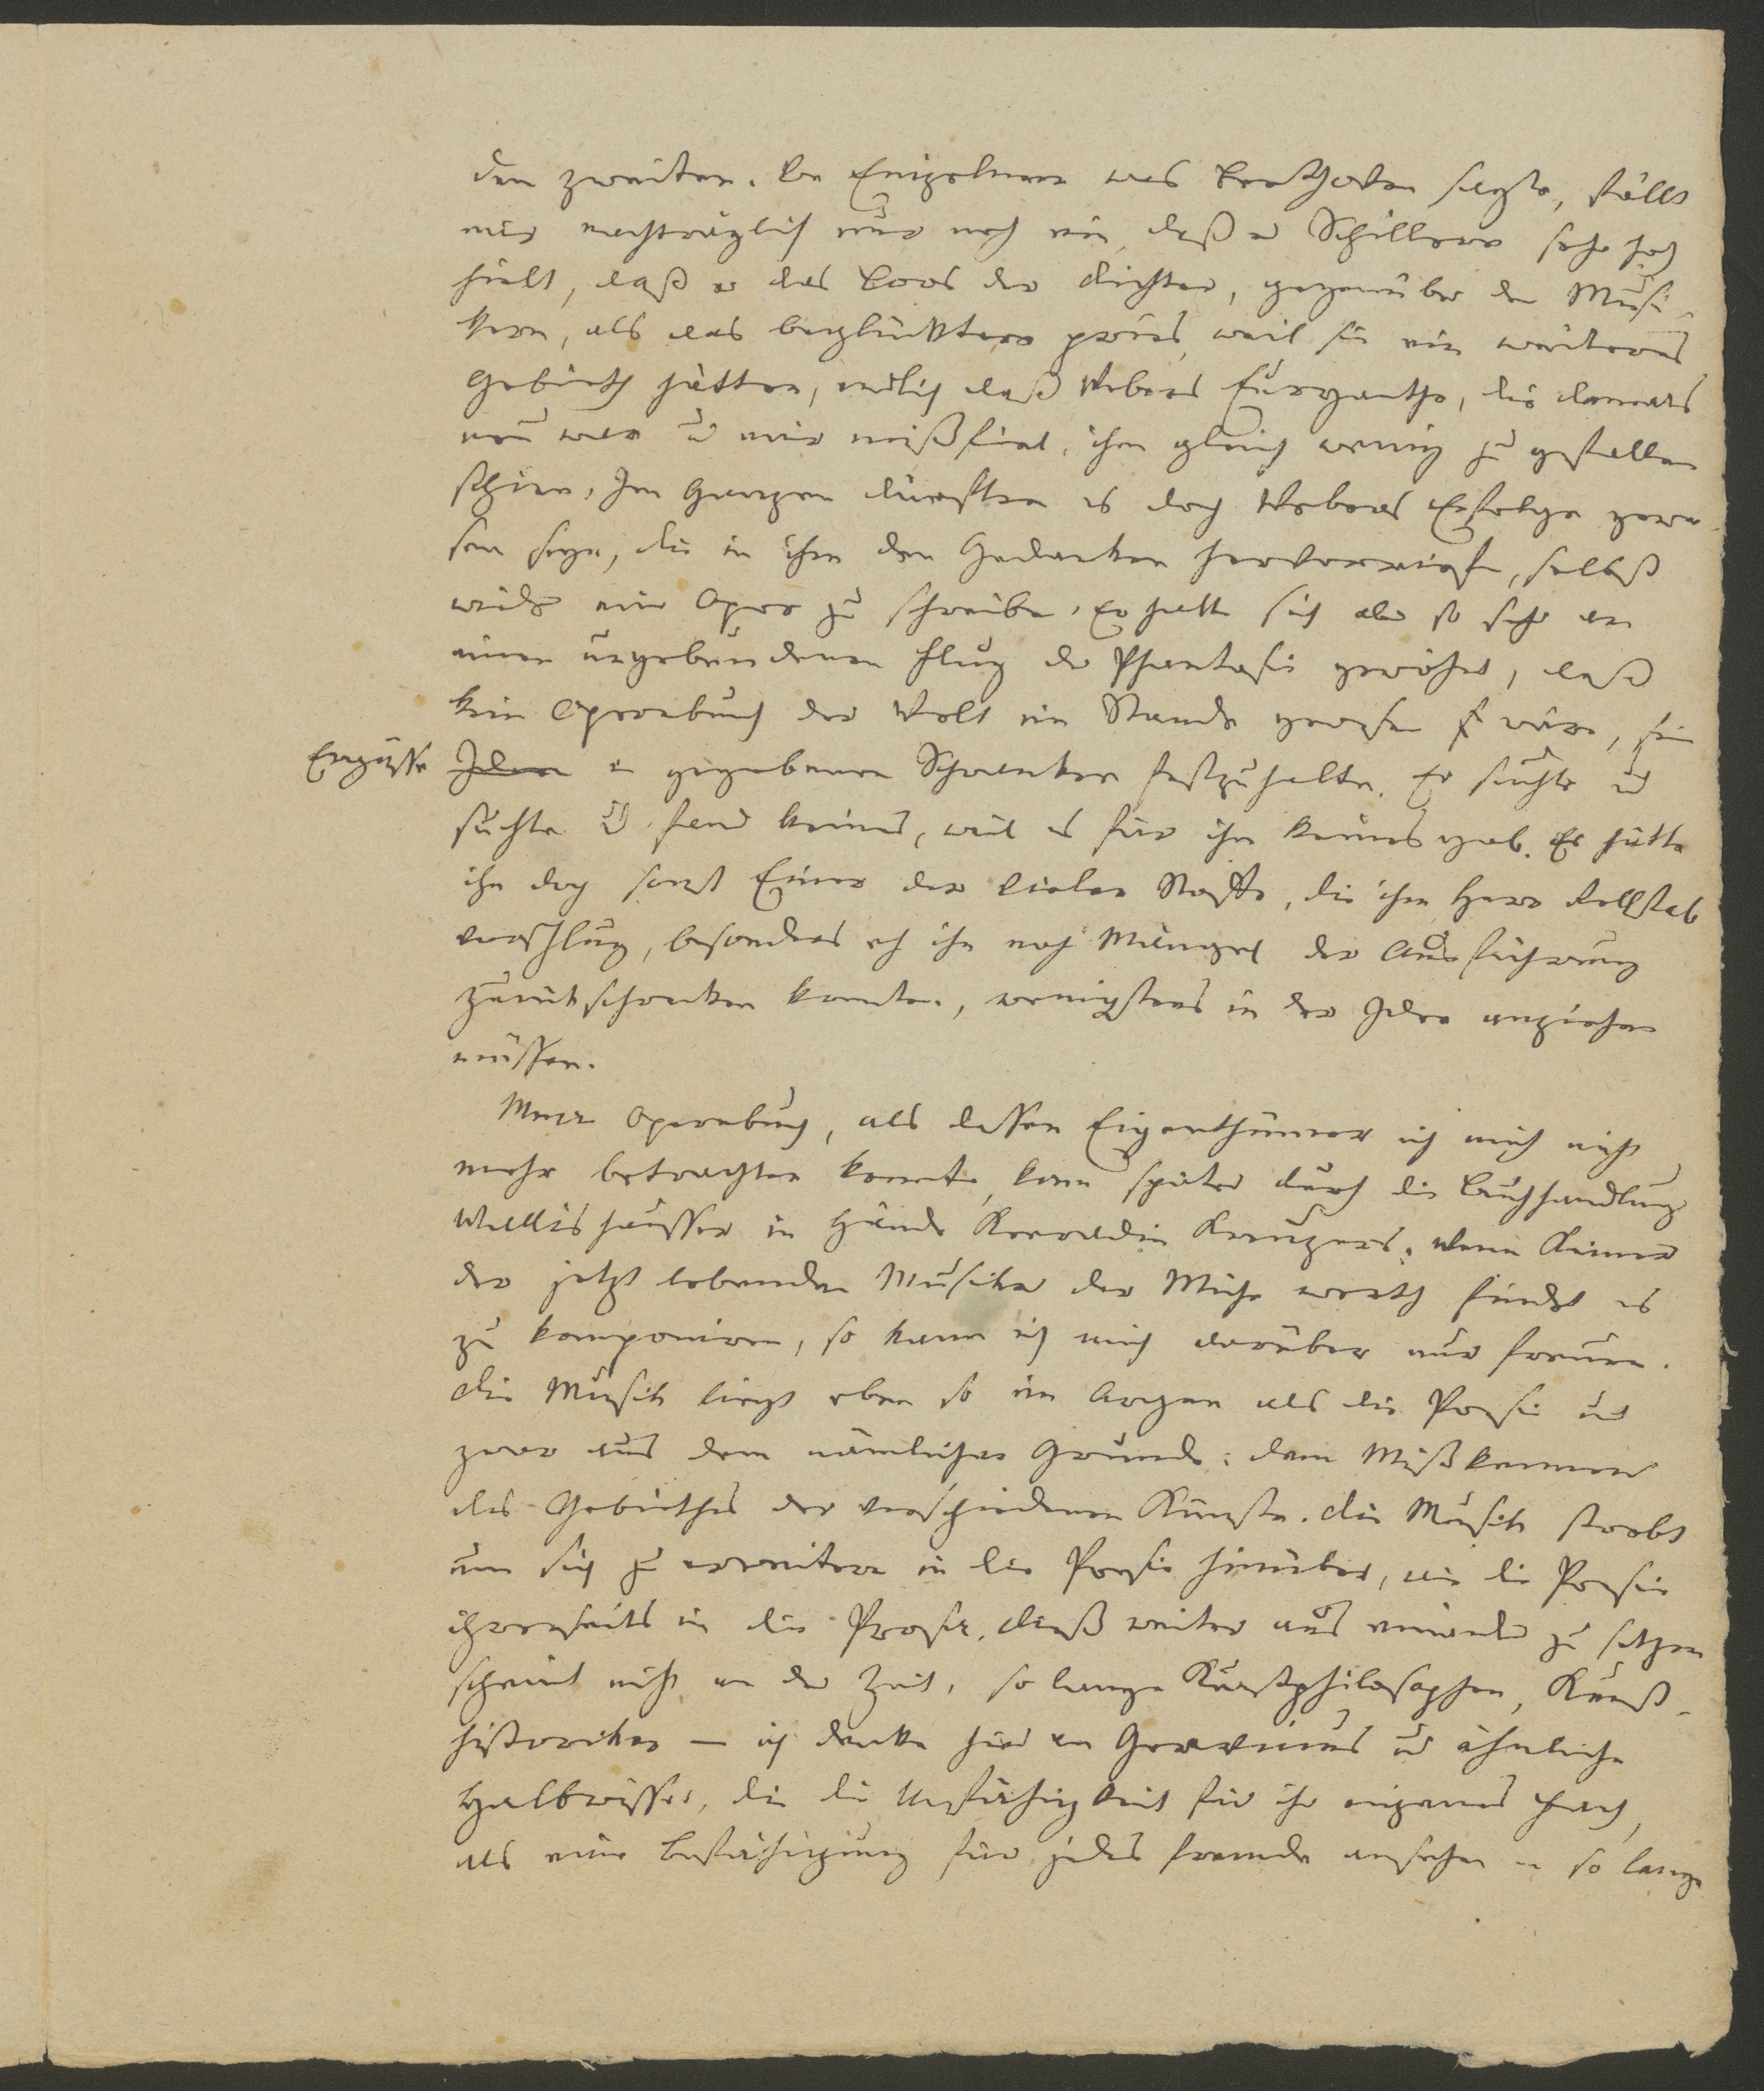 den zweiten. Von Einzelnem was Beethoven sagte, fällt
mir nachträglich nur noch ein, daß er Schillern sehr hoch
hielt, daß er das Loos der Dichter, gegenüber den Musi-
kern, als das beglücktere pries, weil sie ein weiteres
Gebieth hätten, endlich daß Webers Euryanthe, die damals
neu war u mir mißfiel, ihm gleich wenig zu gefallen
schien. Im Ganzen dürften es doch Webers Erfolge gewe-
sen seyn, die in ihm den Gedanken hervorriefen, selbst
wieder eine Oper zu schreiben. Er hatte sich aber so sehr an
einen ungebundenen Flug der Phantasie gewöhnt, daß
kein Opernbuch der Welt im Stande gewesen wäre, seine
Ergüsse Ideen in gegebenen Schranken festzuhalten. Er suchte und
suchte und fand keines, weil es für ihn keines gab. Es hätte
ihn doch sonst Einer der vielen Stoffe, die ihm Herr Rellstab
vorschlug, besonders eh ihn noch Mängel der Ausführung
zurückschrecken konnten, wenigstens in der Idee anziehen
müssen.
Mein Opernbuch, als dessen Eigenthümer ich mich nicht
mehr betrachten konnte, kam später durch die Buchhandlung
Wallishausser in Hände Konradin Kreuzers. Wenn Keiner
der jetzt lebenden Musiker der Mühe werth findet es
zu komponiren, so kann ich mich darüber nur freuen.
Die Musik liegt eben so im Argen als die Poesie und
zwar aus dem nämlichen Grunde: dem Mißkennen
des Gebiethes der verschiedenen Künste. Die Musik strebt
um sich zu erweitern in die Poesie hinüber, wie die Poesie
ihrerseits in die Prosa. Dieß weiter aus einander zu setzen
scheint nicht an der Zeit, so lange Kunstphilosophen, Kunst-
historiker – ich denke hier an Gervinus und ähnliche
Halbwisser, die die Unfähigkeit für ihr eigenes Fach,
als eine Befähigung für jedes fremde ansehen – so lange